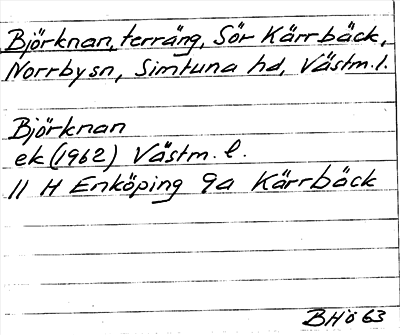 Björknan, terräng, Sör Kärrbäck,
Norrby sn, Simtuna hd, Västm. l.
Björknan
ek (1962) Västm. l.
11 H Enköping 9a Kärrbäck
BHö 63